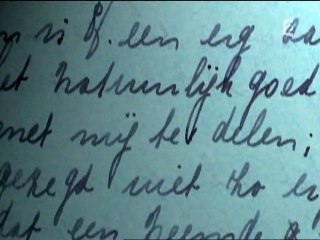 is een erg
natuurlijk goed
met mij te delen;
gezegd niet zo
dat een